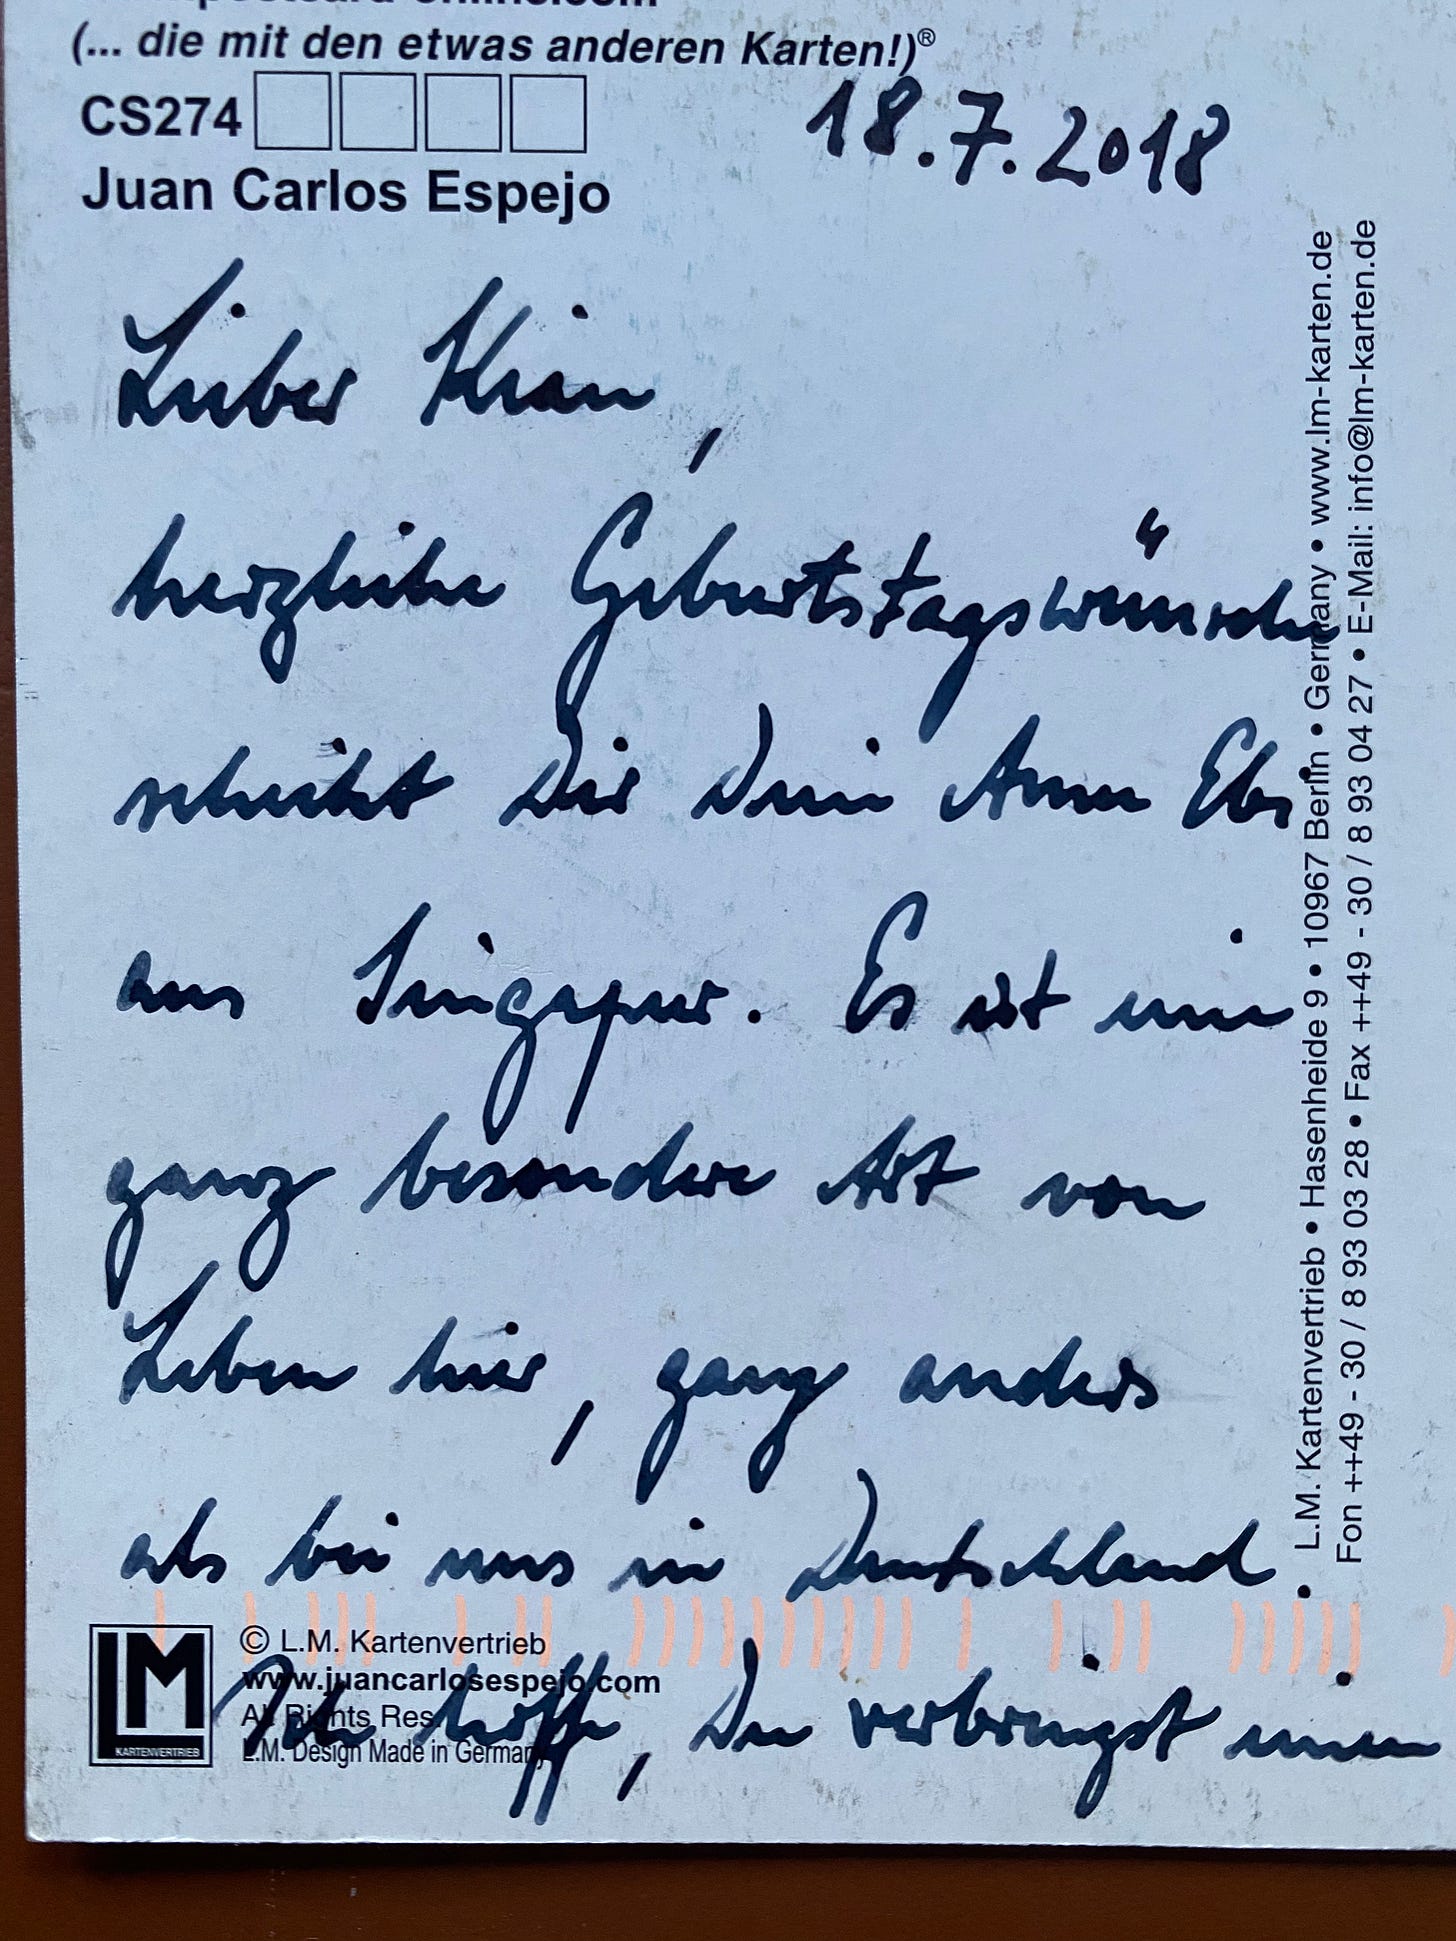 (... die mit den etwas anderen Karten!)®
CS274
Juan Carlos Espejo
18.7.2018
Lieber Kian,
herzliche Geburtstagswünsche
schickt Dir Dein
aus Singapur. Es ist eine
ganz besondere Art von
Leben hier, ganz anders
als bei uns in Deutschland.
Ich hoffe, Du verbringst einen
L.M. Kartenvertrieb • Hasenheide 9 • 10967 Berlin • Germany • www.lm-karten.de
Fon ++49 - 30 / 8 93 03 28 • Fax ++49 - 30 / 8 93 04 27 • E-Mail: info@lm-karten.de
LM
KARTENVERTRIEB
© L.M. Kartenvertrieb
www.juancarlosespejo.com
All Rights Res.
L.M. Design Made in Germany